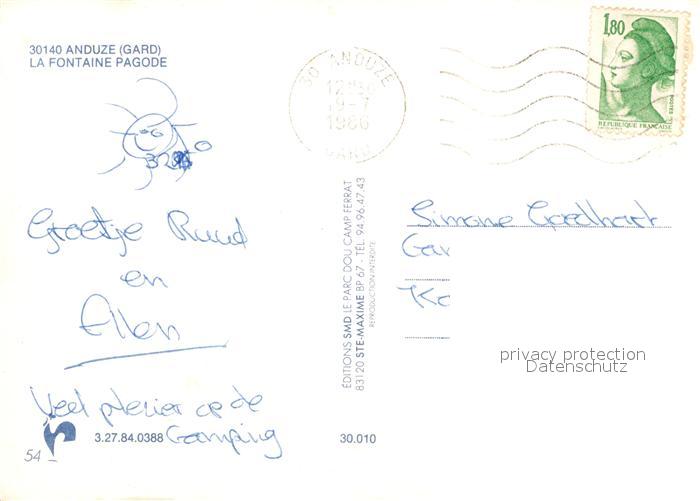 30140 ANDUZE (GARD)
LA FONTAINE PAGODE
30 ANDUZE
9-7
1986
GARD
1,80
POSTES
REPUBLIQUE FRANÇAISE
Groetje Ruud
en
Ellen
Veel plezier op de
Camping
3.27.84.0388
54
30.010
ÉDITIONS SMD LE PARC DOU CAMP FERRAT
83120 STE-MAXIME BP 67 - TEL. 94.96.47.43
REPRODUCTION INTERDITE
Simone Goedhart
Gar
Ko
privacy protection
Datenschutz